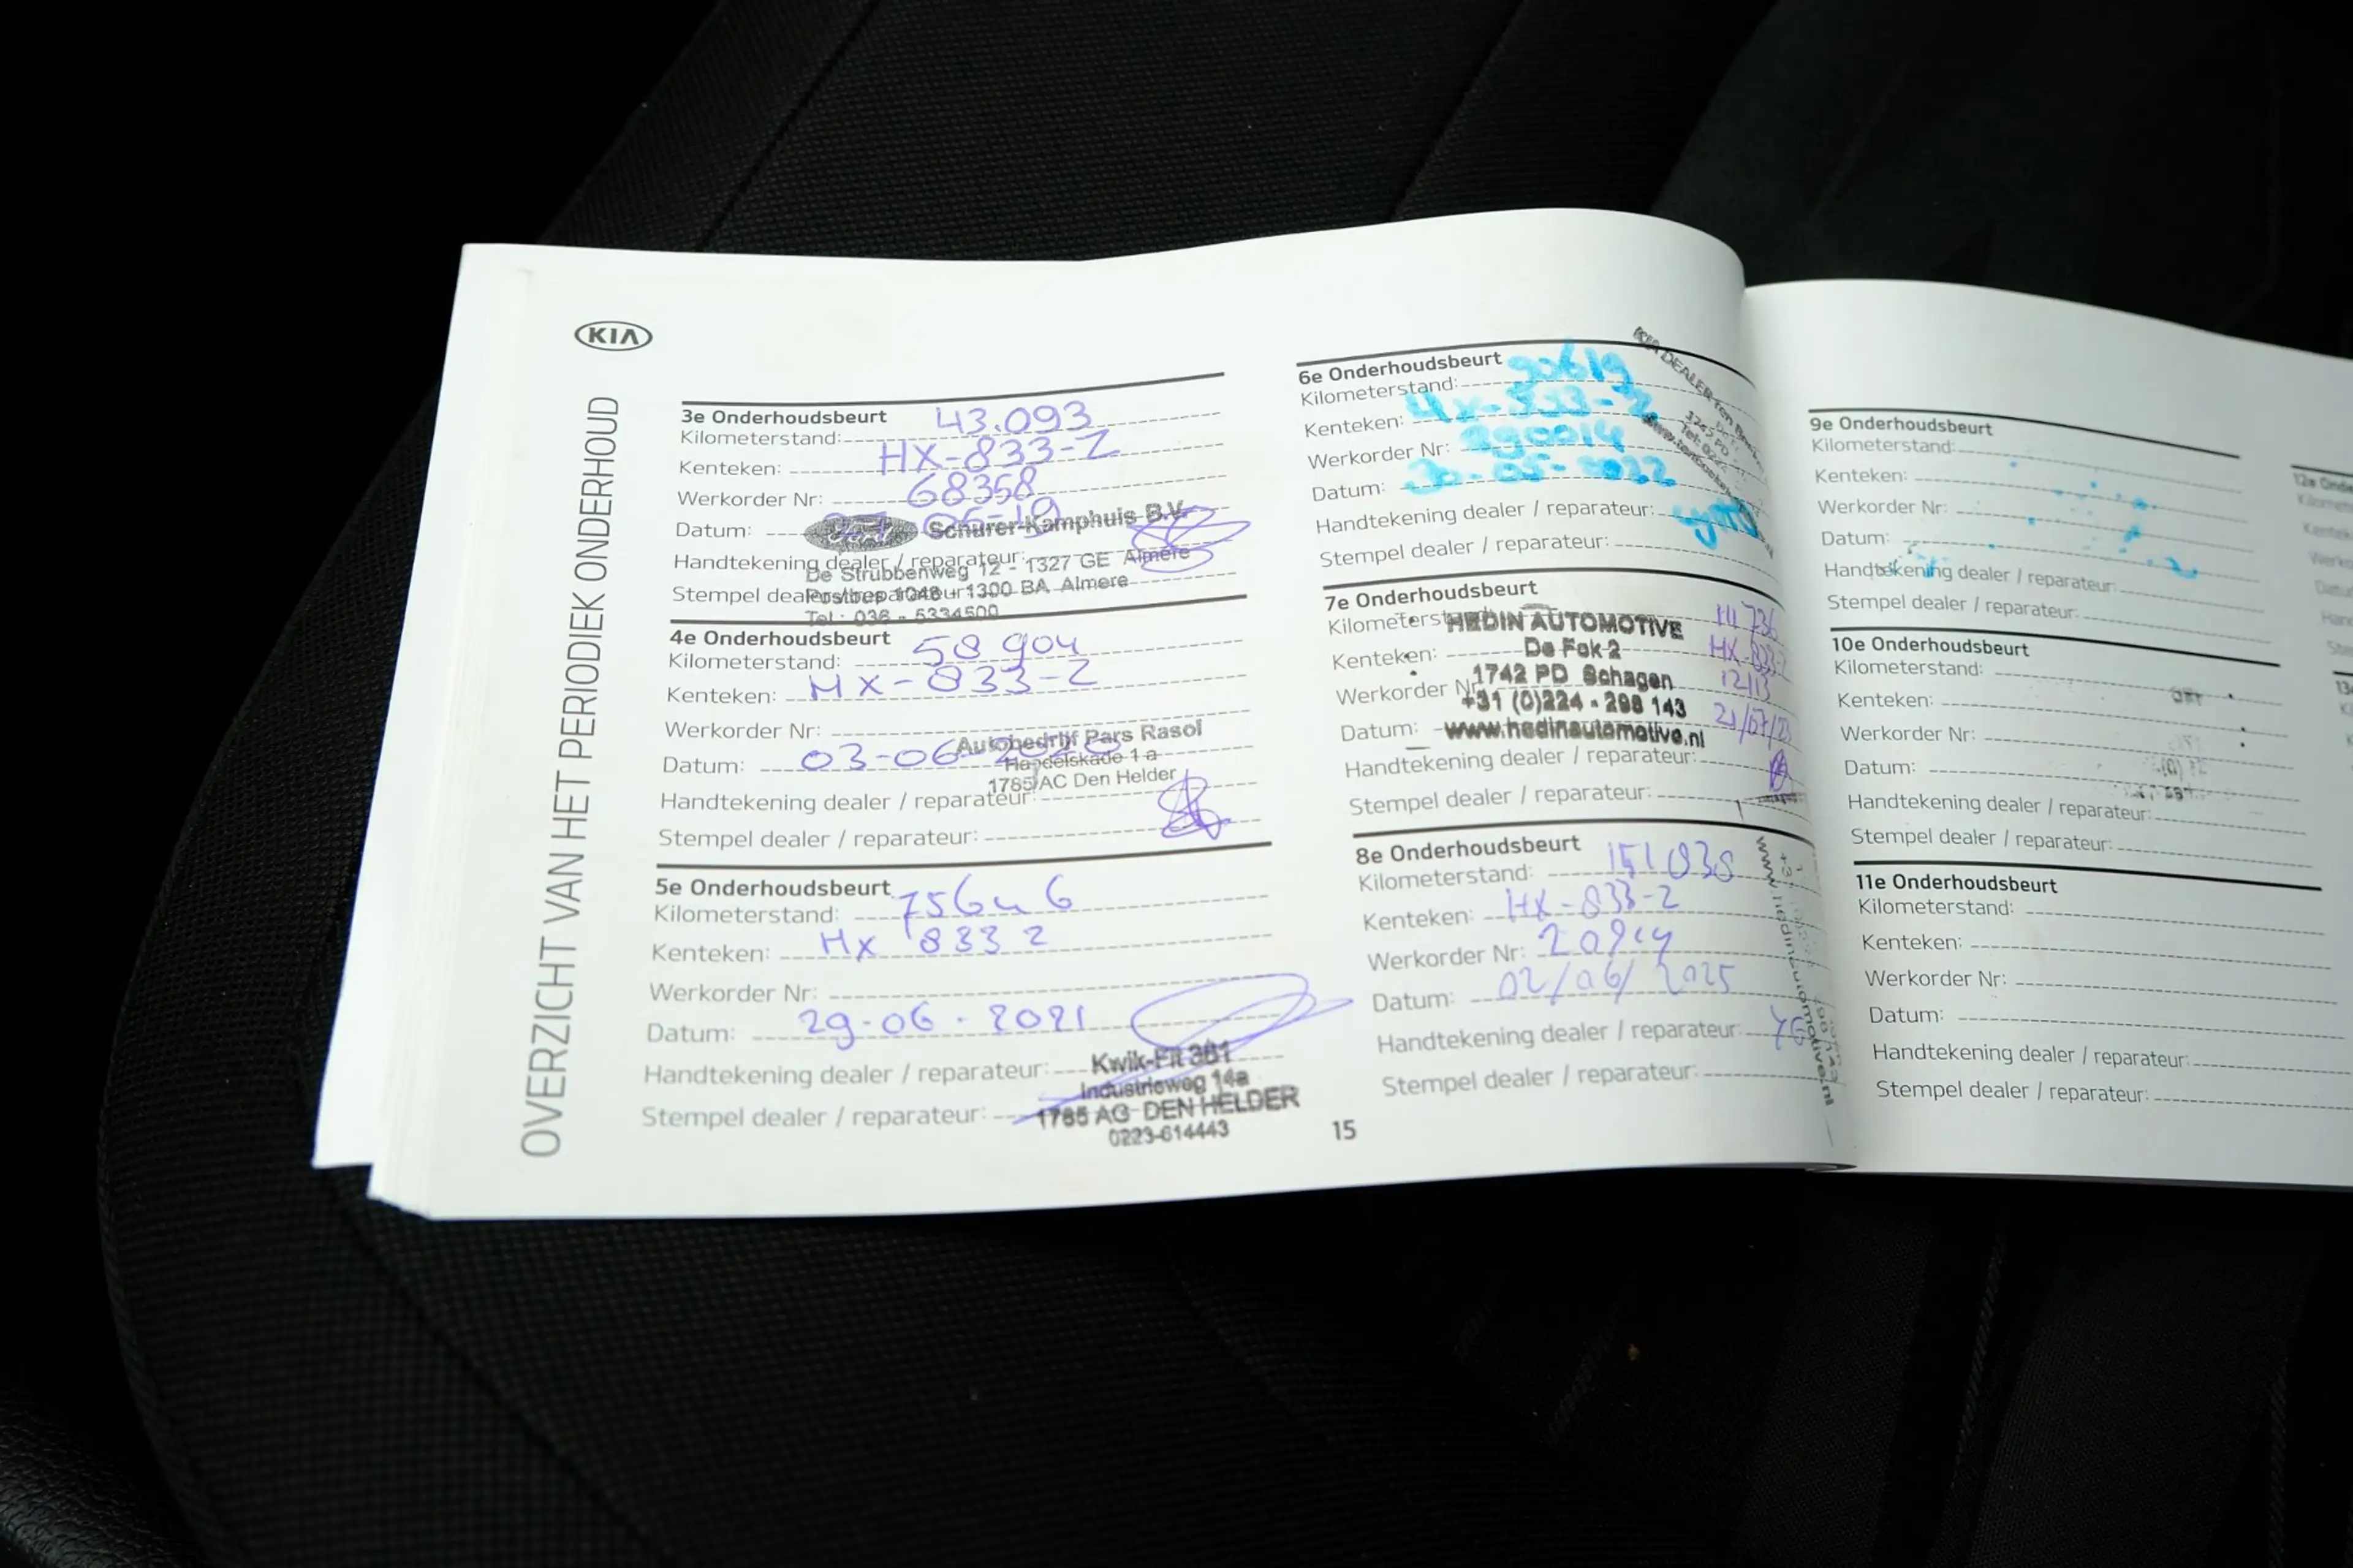 KIA
OVERZICHT VAN HET PERIODIEK ONDERHOUD
3e Onderhoudsbeurt
Kilometerstand: 43.093
Kenteken: HX-833-Z
Werkorder Nr: 68358
Datum: 06-19
Schürer-Kamphuis B.V.
Handtekening dealer / reparateur:
De Strubbenweg 12 - 1327 GE Almere
Stempel dealer / reparateur:
Postbus 1048 - 1300 BA Almere
Tel.: 036 - 5334500
4e Onderhoudsbeurt
Kilometerstand: 58904
Kenteken: HX-833-Z
Werkorder Nr:
Datum: 03-06-2020
Autobedrijf Pars Rasol
Handelskade 1 a
1785 AC Den Helder
Handtekening dealer / reparateur:
Stempel dealer / reparateur:
5e Onderhoudsbeurt
Kilometerstand: 75646
Kenteken: HX 833 2
Werkorder Nr:
Datum: 29-06-2021
Handtekening dealer / reparateur:
Stempel dealer / reparateur:
Kwik-Fit 361
Industrieweg 14a
1785 AG DEN HELDER
0223-614443
15
6e Onderhoudsbeurt
Kilometerstand: 90619
Kenteken: HX-833-Z
Werkorder Nr: 290014
Datum: 30-05-2022
Handtekening dealer / reparateur:
Stempel dealer / reparateur:
KIA DEALER
7e Onderhoudsbeurt
Kilometerstand: 111736
Kenteken: HX-833-Z
Werkorder Nr: 12113
Datum: 21/07/23
HEDIN AUTOMOTIVE
De Fok 2
1742 PD Schagen
+31 (0)224 - 298 143
www.hedinautomotive.nl
Handtekening dealer / reparateur:
Stempel dealer / reparateur:
8e Onderhoudsbeurt
Kilometerstand: 151038
Kenteken: HX-833-2
Werkorder Nr:
Datum: 02/06/2025
Handtekening dealer / reparateur:
Stempel dealer / reparateur:
www.hedinautomotive.nl
9e Onderhoudsbeurt
Kilometerstand:
Kenteken:
Werkorder Nr:
Datum:
Handtekening dealer / reparateur:
Stempel dealer / reparateur:
10e Onderhoudsbeurt
Kilometerstand:
Kenteken:
Werkorder Nr:
Datum:
Handtekening dealer / reparateur:
Stempel dealer / reparateur:
11e Onderhoudsbeurt
Kilometerstand:
Kenteken:
Werkorder Nr:
Datum:
Handtekening dealer / reparateur:
Stempel dealer / reparateur: